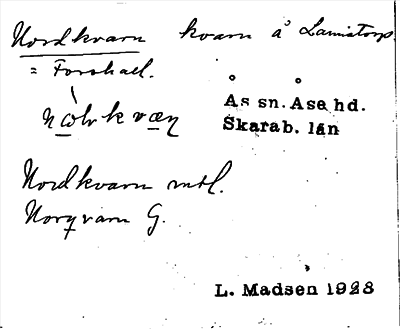 Nordkvarn kvarn å Lamstorp.
= Forshall.
Ås sn. Åse hd.
Skarab. län
Nordkvarn mtl.
Norqvarn G.
L. Madsen 1928